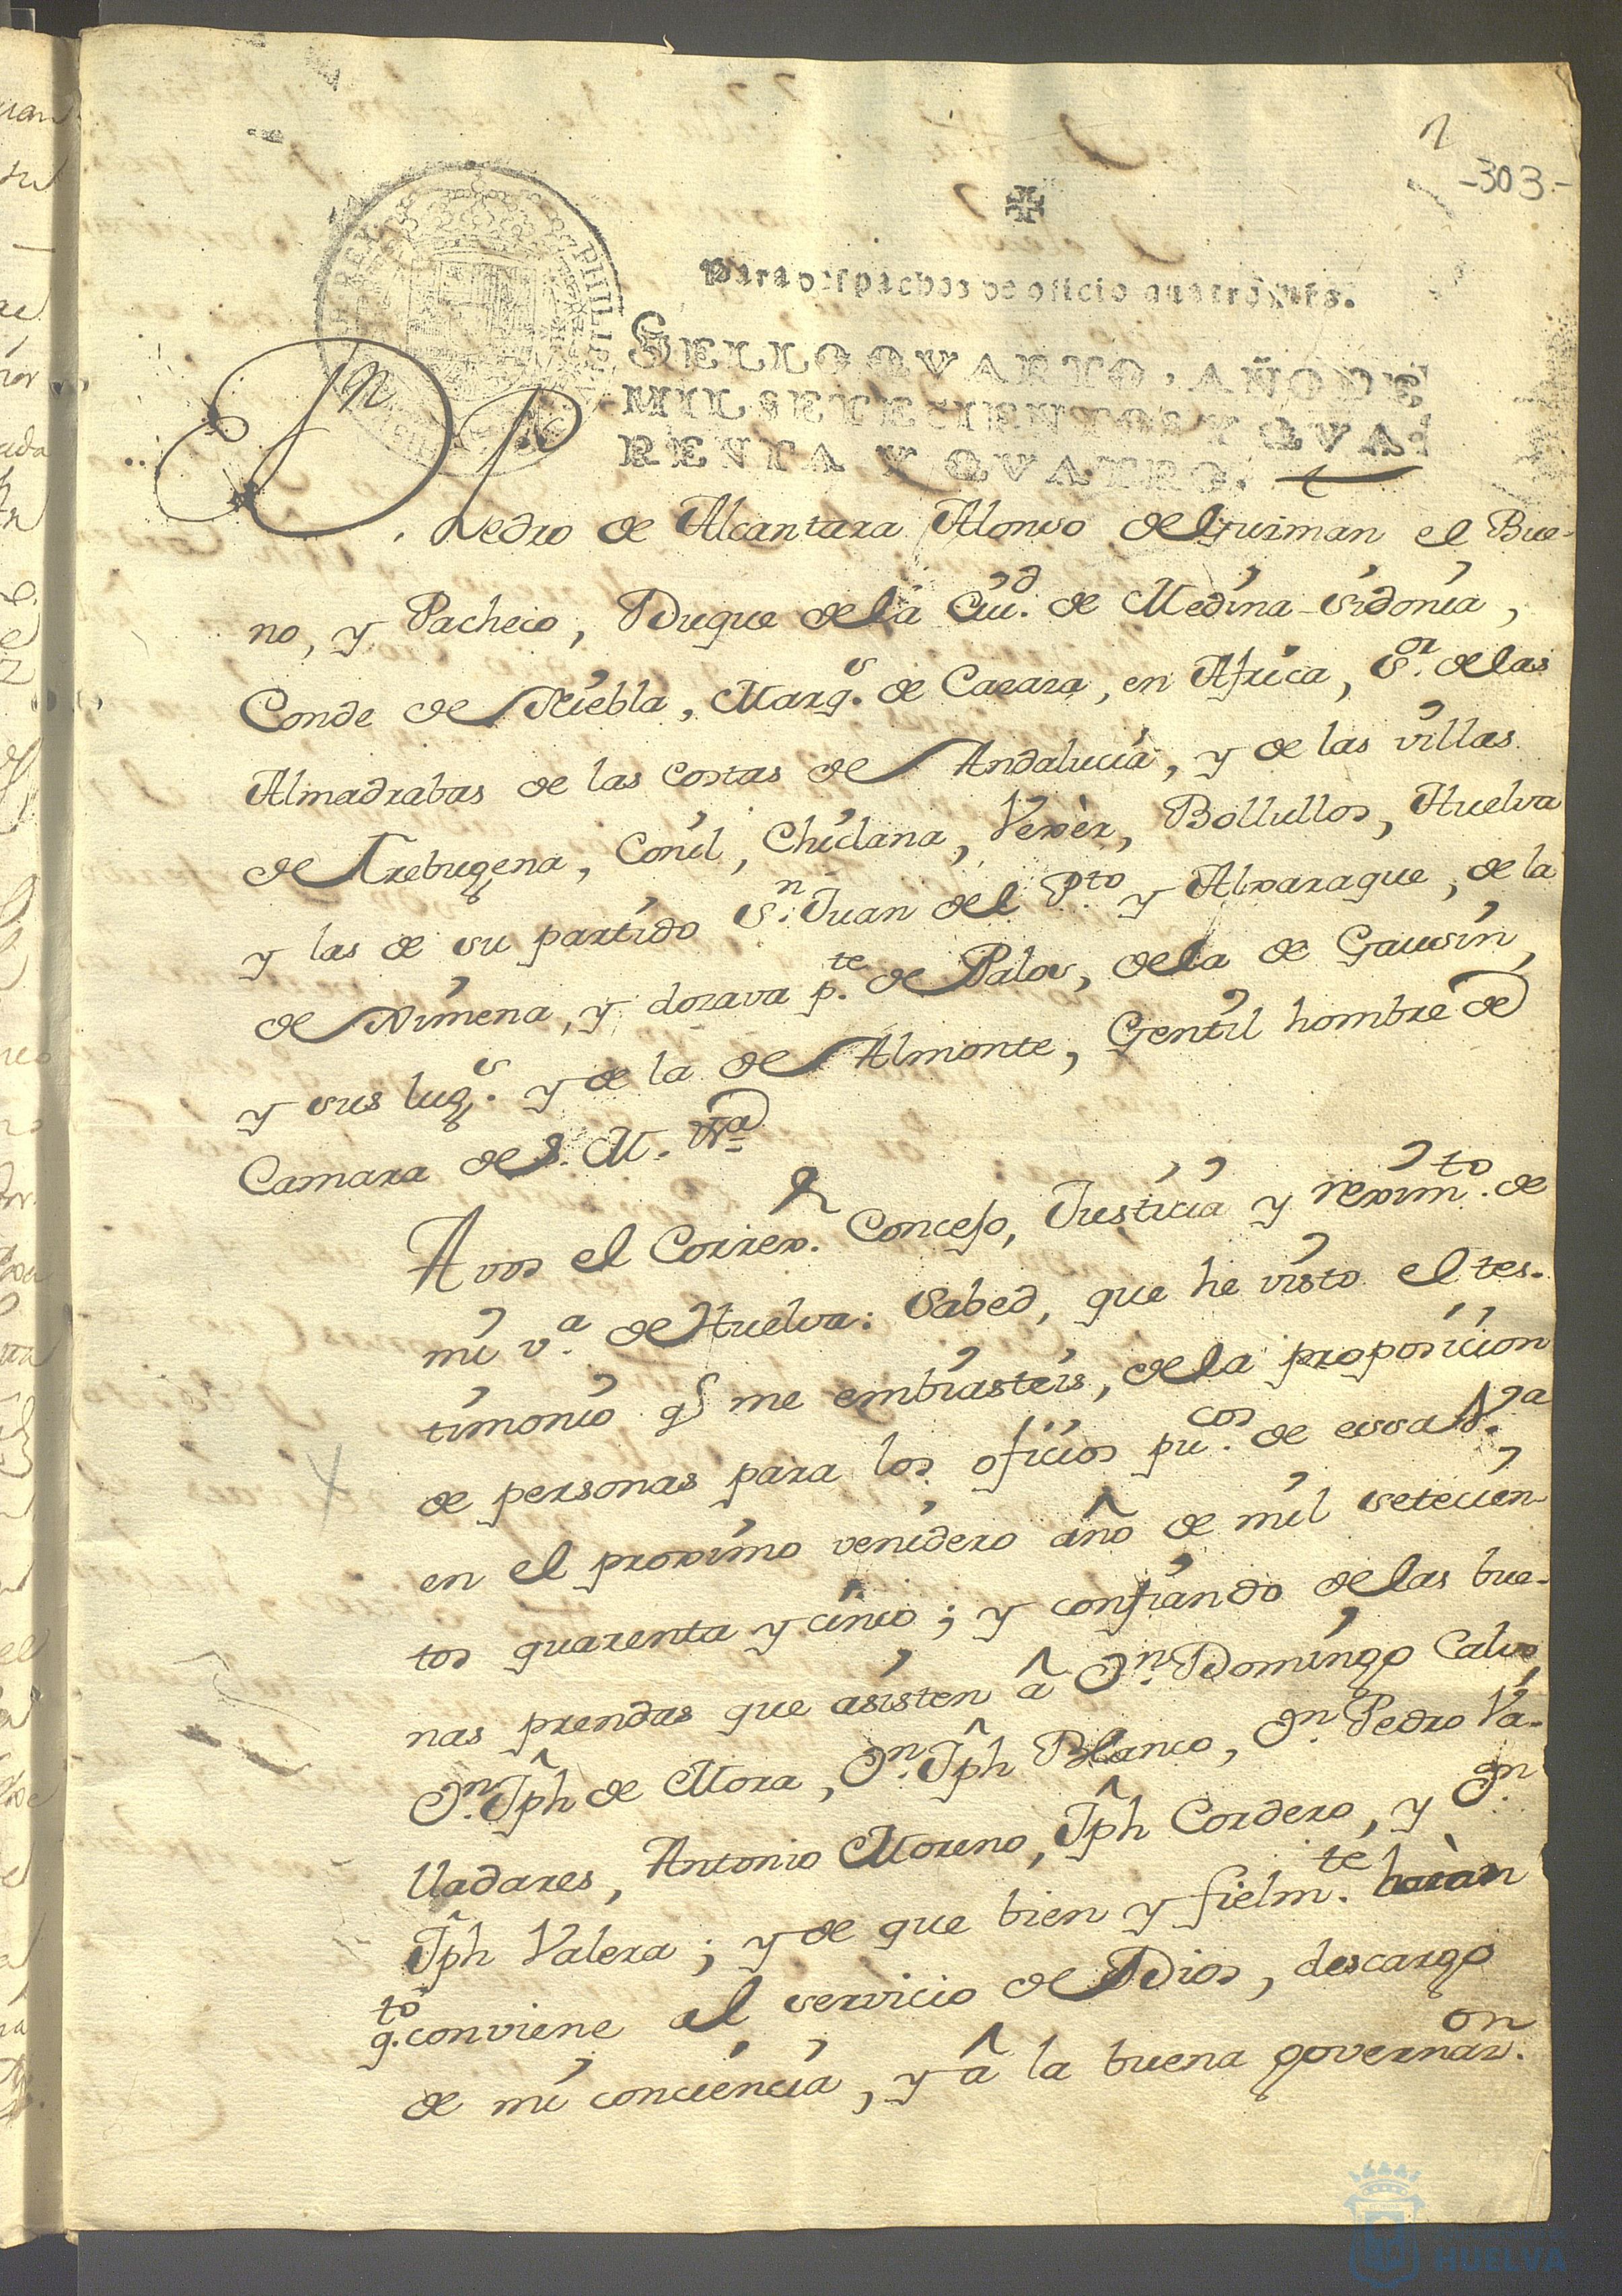 -303-
Para despachos de oficio quatro mrs.
SELLO QVARTO, AÑO DE
MIL SETECIENTOS Y QVA-
RENTA Y QVATRO.
Dn Pedro de Alcantara Alonso de Guzman el Bue-
no, y Pacheco, Duque de la Ciud. de Medina Sidonia,
Conde de Niebla, Marqs. de Cazaza, en Africa, Sor. de las
Almadrabas de las costas de Andalucia, y de las villas
de Trebugena, Conil, Chiclana, Vexèr, Bollullos, Huelva
y las de su partido Sn. Juan del Pto. y Alxaraque, de la
de Ximena, y dozava pte. de Palos, de la de Gausin,
y sus lugs. y de la de Almonte, Gentil hombre de
Camara de S. M. &a
A vos el Correxr. Concejo, Justicia y reximto. de
mi va. de Huelva: Sabed, que he visto el tes-
timonio q me embiasteis, de la proposicion
de personas para los oficios pucos. de essa Va.
en el proximo venidero año de mil setecien-
tos quarenta y cinco; y confiando de las bue-
nas prendas que asisten â Dn. Domingo Calvo,
Dn. Jph de Mora, Dn. Jph Blanco, Dn. Pedro Va-
lladares, Antonio Moreno, Jph Cordero, y Dn.
Jph Valera; y de que bien y fielmte. haràn
qto. conviene al servicio de Dios, descargo
de mi conciencia, y â la buena governazon.
HUELVA